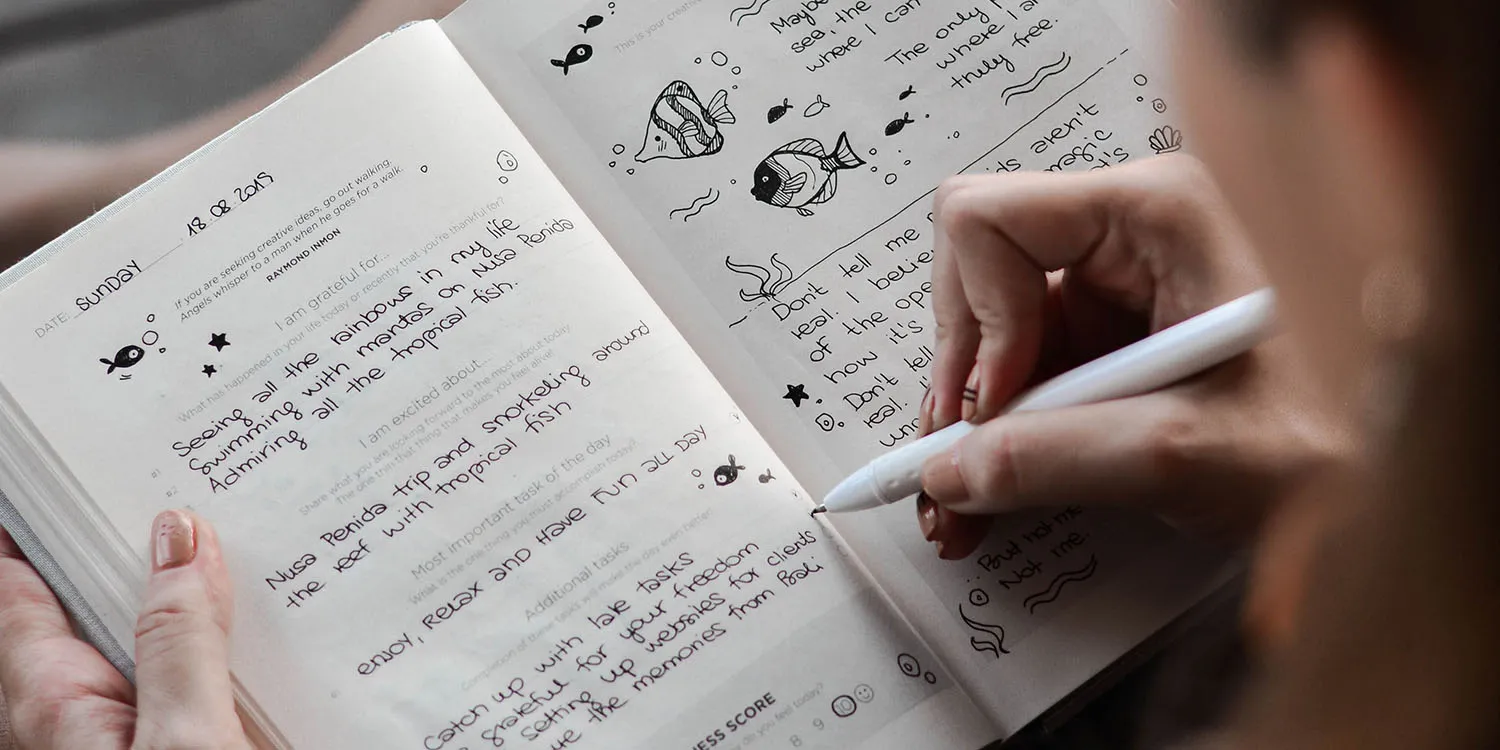 DATE: SUNDAY 18.08.2019
If you are seeking creative ideas, go out walking.
Angels whisper to a man when he goes for a walk.
RAYMOND INMON
I am grateful for...
What has happened in your life today or recently that you're thankful for?
#1
Seeing all the rainbows in my life
#2
Swimming with mantas on Nusa Penida
Admiring all the tropical fish.
I am excited about...
Share what you are looking forward to the most about today
The one thing that makes you feel alive!
Nusa Penida trip and snorkeling around
the reef with tropical fish
Most important task of the day
What is the one thing you must accomplish today?
ENJOY, RELAX AND HAVE FUN ALL DAY
Additional tasks
Completion of these tasks will make the day even better.
Catch up with late tasks
grateful for your freedom
setting up websites for clients
the memories from Bali
NESS SCORE
do you feel today?
8 9 10
This is your creative
Maybe
sea, the
where I can
The only
where I a
truly free.
ds aren't
magic
Don't tell me
real. I believe
of the ope
how it's
Don't tell
real.
But not me.
Not me.